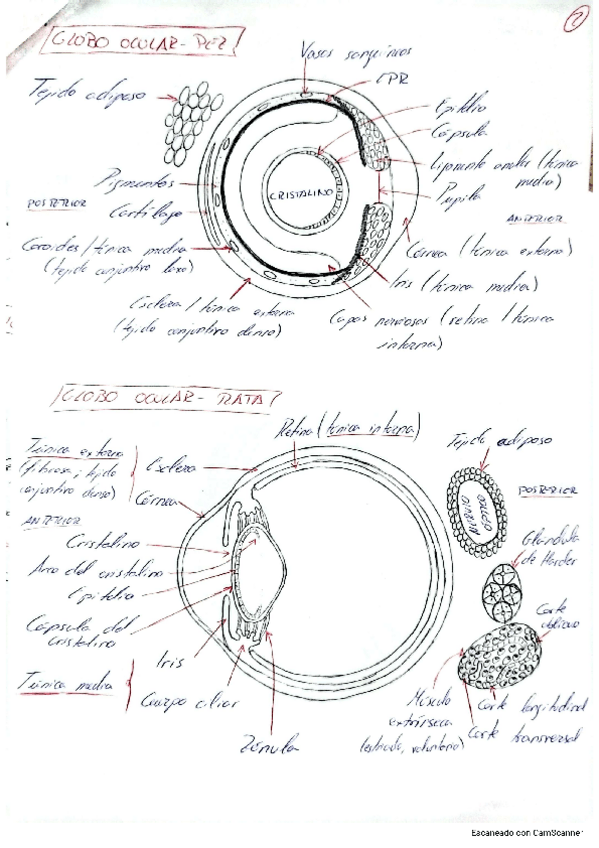 2
GLOBO OCULAR - PEZ
Vasos sanguíneos
EPR
Tejido adiposo
Epitelio
Cápsula
Ligamento anular (túnica
media)
Pigmentos
CRISTALINO
Pupila
POSTERIOR
Cartílago
ANTERIOR
Coroides / túnica media
(tejido conjuntivo laxo)
Córnea (túnica externa)
Iris (túnica media)
Esclera / túnica externa
(tejido conjuntivo denso)
Capas nerviosas (retina / túnica
interna)
GLOBO OCULAR - RATA
Retina (túnica interna)
Tejido adiposo
Túnica externa
(fibrosa; tejido
conjuntivo denso)
Esclera
Córnea
POSTERIOR
NERVIO
ÓPTICO
ANTERIOR
Cristalino
Glándula
de Harder
Arco del cristalino
Epitelio
Cápsula del
cristalino
Corte
oblicuo
Iris
Túnica media
Cuerpo ciliar
Músculo
extrínseco
(estriado, voluntario)
Corte longitudinal
Corte transversal
Zónula
Escaneado con CamScanner